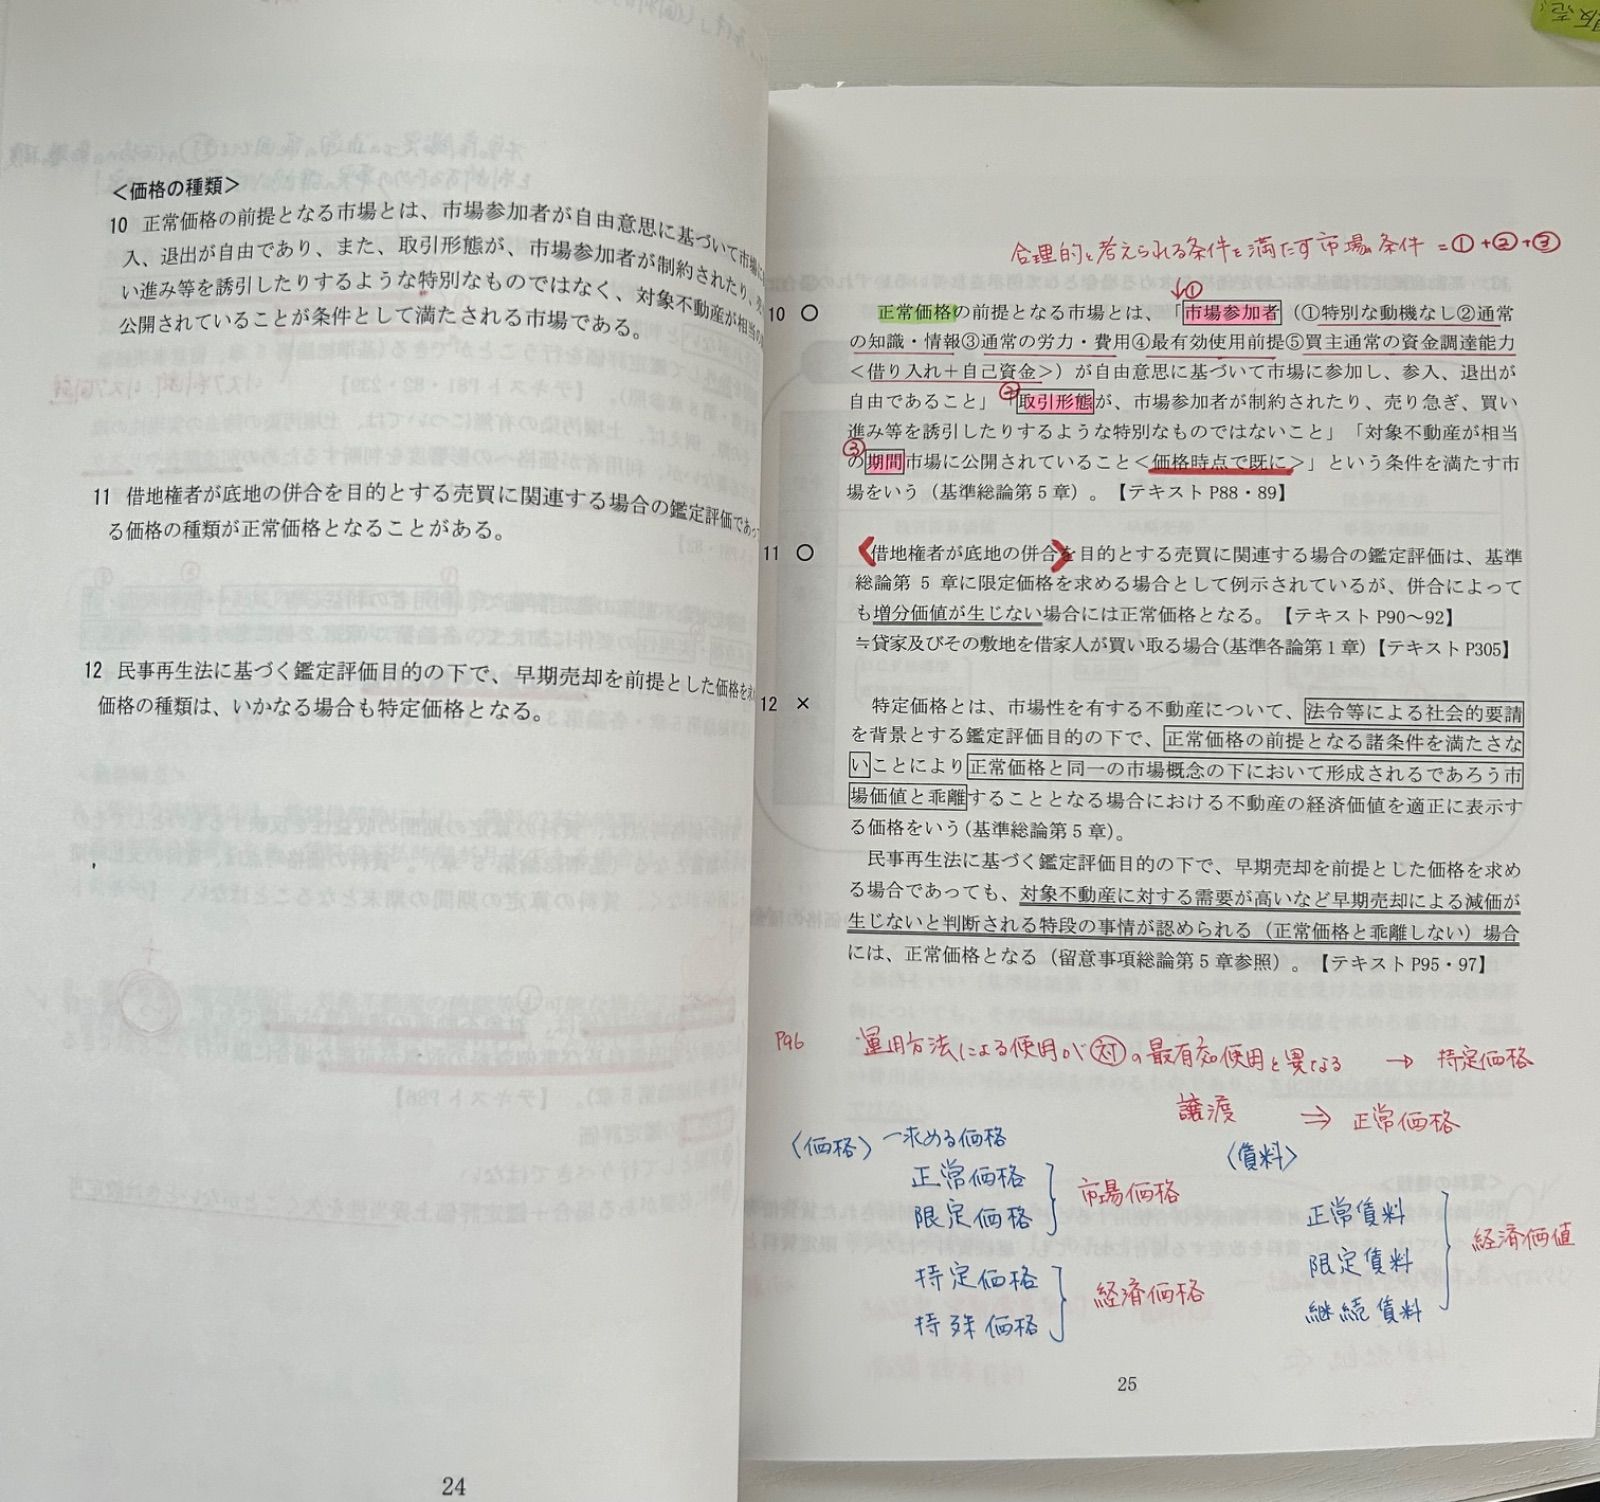 <価格の種類>
10 正常価格の前提となる市場とは、市場参加者が自由意思に基づいて市場に
入、退出が自由であり、また、取引形態が、市場参加者が制約されたり、
い進み等を誘引したりするような特別なものではなく、対象不動産が相当の
公開されていることが条件として満たされる市場である。
11 借地権者が底地の併合を目的とする売買に関連する場合の鑑定評価であっ
る価格の種類が正常価格となることがある。
12 民事再生法に基づく鑑定評価目的の下で、早期売却を前提とした価格を求
価格の種類は、いかなる場合も特定価格となる。
24
合理的と考えられる条件を満たす市場条件 =①+②+③
↓①
10 ○ 正常価格の前提となる市場とは、「市場参加者(①特別な動機なし②通常
の知識・情報③通常の労力・費用④最有効使用前提⑤買主通常の資金調達能力
<借り入れ+自己資金>)が自由意思に基づいて市場に参加し、参入、退出が
自由であること」「②取引形態が、市場参加者が制約されたり、売り急ぎ、買い
進み等を誘引したりするような特別なものではないこと」「対象不動産が相当
③の期間市場に公開されていること<価格時点で既に>」という条件を満たす市
場をいう(基準総論第5章)。【テキストP88・89】
11 ○ <借地権者が底地の併合>を目的とする売買に関連する場合の鑑定評価は、基準
総論第5章に限定価格を求める場合として例示されているが、併合によって
も増分価値が生じない場合には正常価格となる。【テキストP90～92】
≒貸家及びその敷地を借家人が買い取る場合(基準各論第1章)【テキストP305】
12 × 特定価格とは、市場性を有する不動産について、法令等による社会的要請
を背景とする鑑定評価目的の下で、正常価格の前提となる諸条件を満たさな
いことにより正常価格と同一の市場概念の下において形成されるであろう市
場価値と乖離することとなる場合における不動産の経済価値を適正に表示す
る価格をいう(基準総論第5章)。
民事再生法に基づく鑑定評価目的の下で、早期売却を前提とした価格を求め
る場合であっても、対象不動産に対する需要が高いなど早期売却による減価が
生じないと判断される特段の事情が認められる(正常価格と乖離しない)場合
には、正常価格となる(留意事項総論第5章参照)。【テキストP95・97】
P96 運用方法による使用が㊉の最有効使用と異なる → 特定価格
譲渡 ⇒ 正常価格
〈価格〉 ー求める価格
正常価格
限定価格
市場価格
特定価格
特殊価格
経済価格
〈賃料〉
正常賃料
限定賃料
継続賃料
経済価値
25